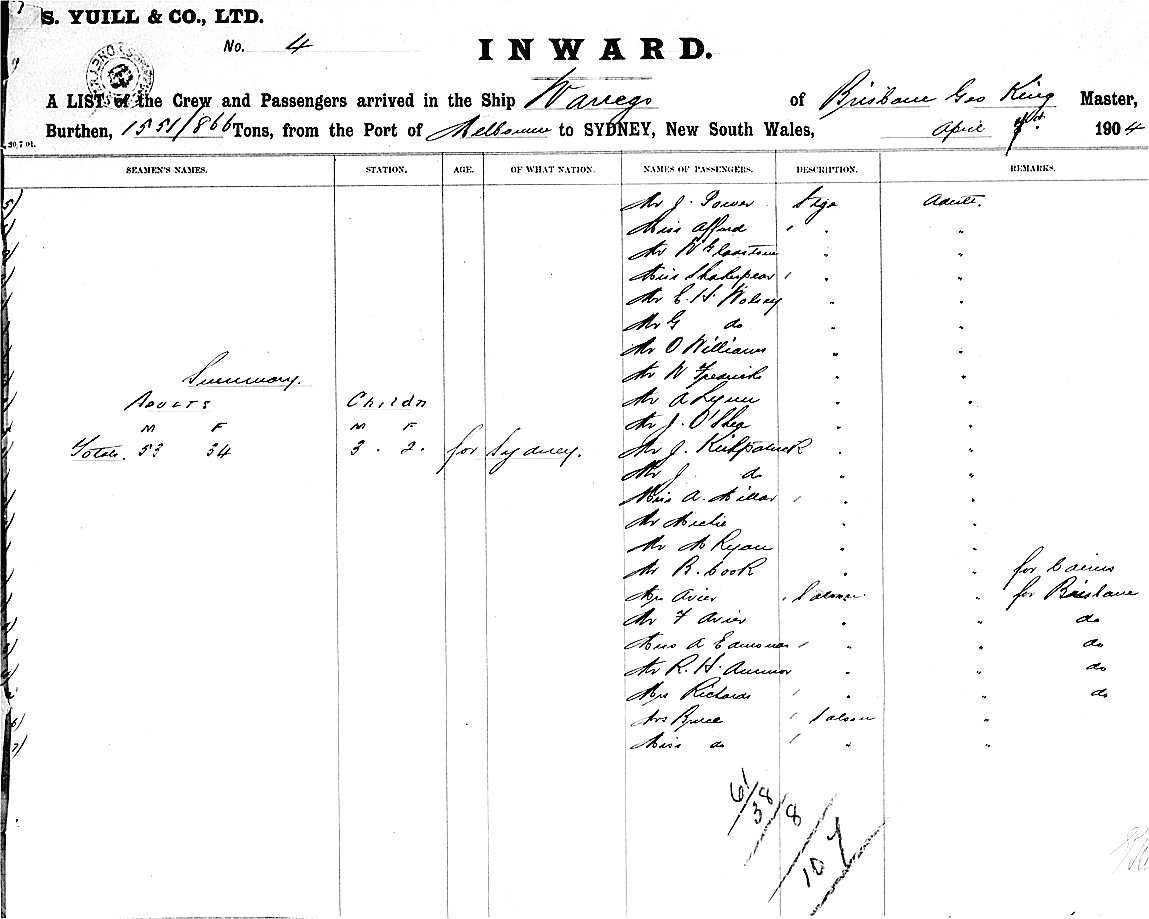 S. YUILL & CO., LTD.
No. 4
INWARD.
A LIST of the Crew and Passengers arrived in the Ship Warrego of Brisbane Geo King Master,
Burthen, 1551/866 Tons, from the Port of Melbourne to SYDNEY, New South Wales, April 1904
20.7.01.
SEAMEN'S NAMES. STATION. AGE. OF WHAT NATION. NAMES OF PASSENGERS. DESCRIPTION. REMARKS.
Mr J. Power Stge Adult.
Miss " "
Mr W Gladstone " "
Miss Shakespear " "
Mr E. H. Wolsey " "
Mr G do " "
Mr O Williams " "
Summary. Mr W Fredericks " "
ADULTS Childn Mr A Lynn " "
M F M F Mr J. O'Shea " "
Total. 53 34 3 . 2. for Sydney. Mr J. Kirkpatrick " "
Mr J do " "
Miss A. Millar " "
Mr " "
Mr M Ryan " "
Mr R. Cook " " for Cairns
Mrs Avier Saloon " for Brisbane
Mr F Avier " " do
Miss A " " do
Mr R. H. " " do
Mrs Richards " " do
Mrs Bruce Saloon "
Miss do " "
61/38/8/107